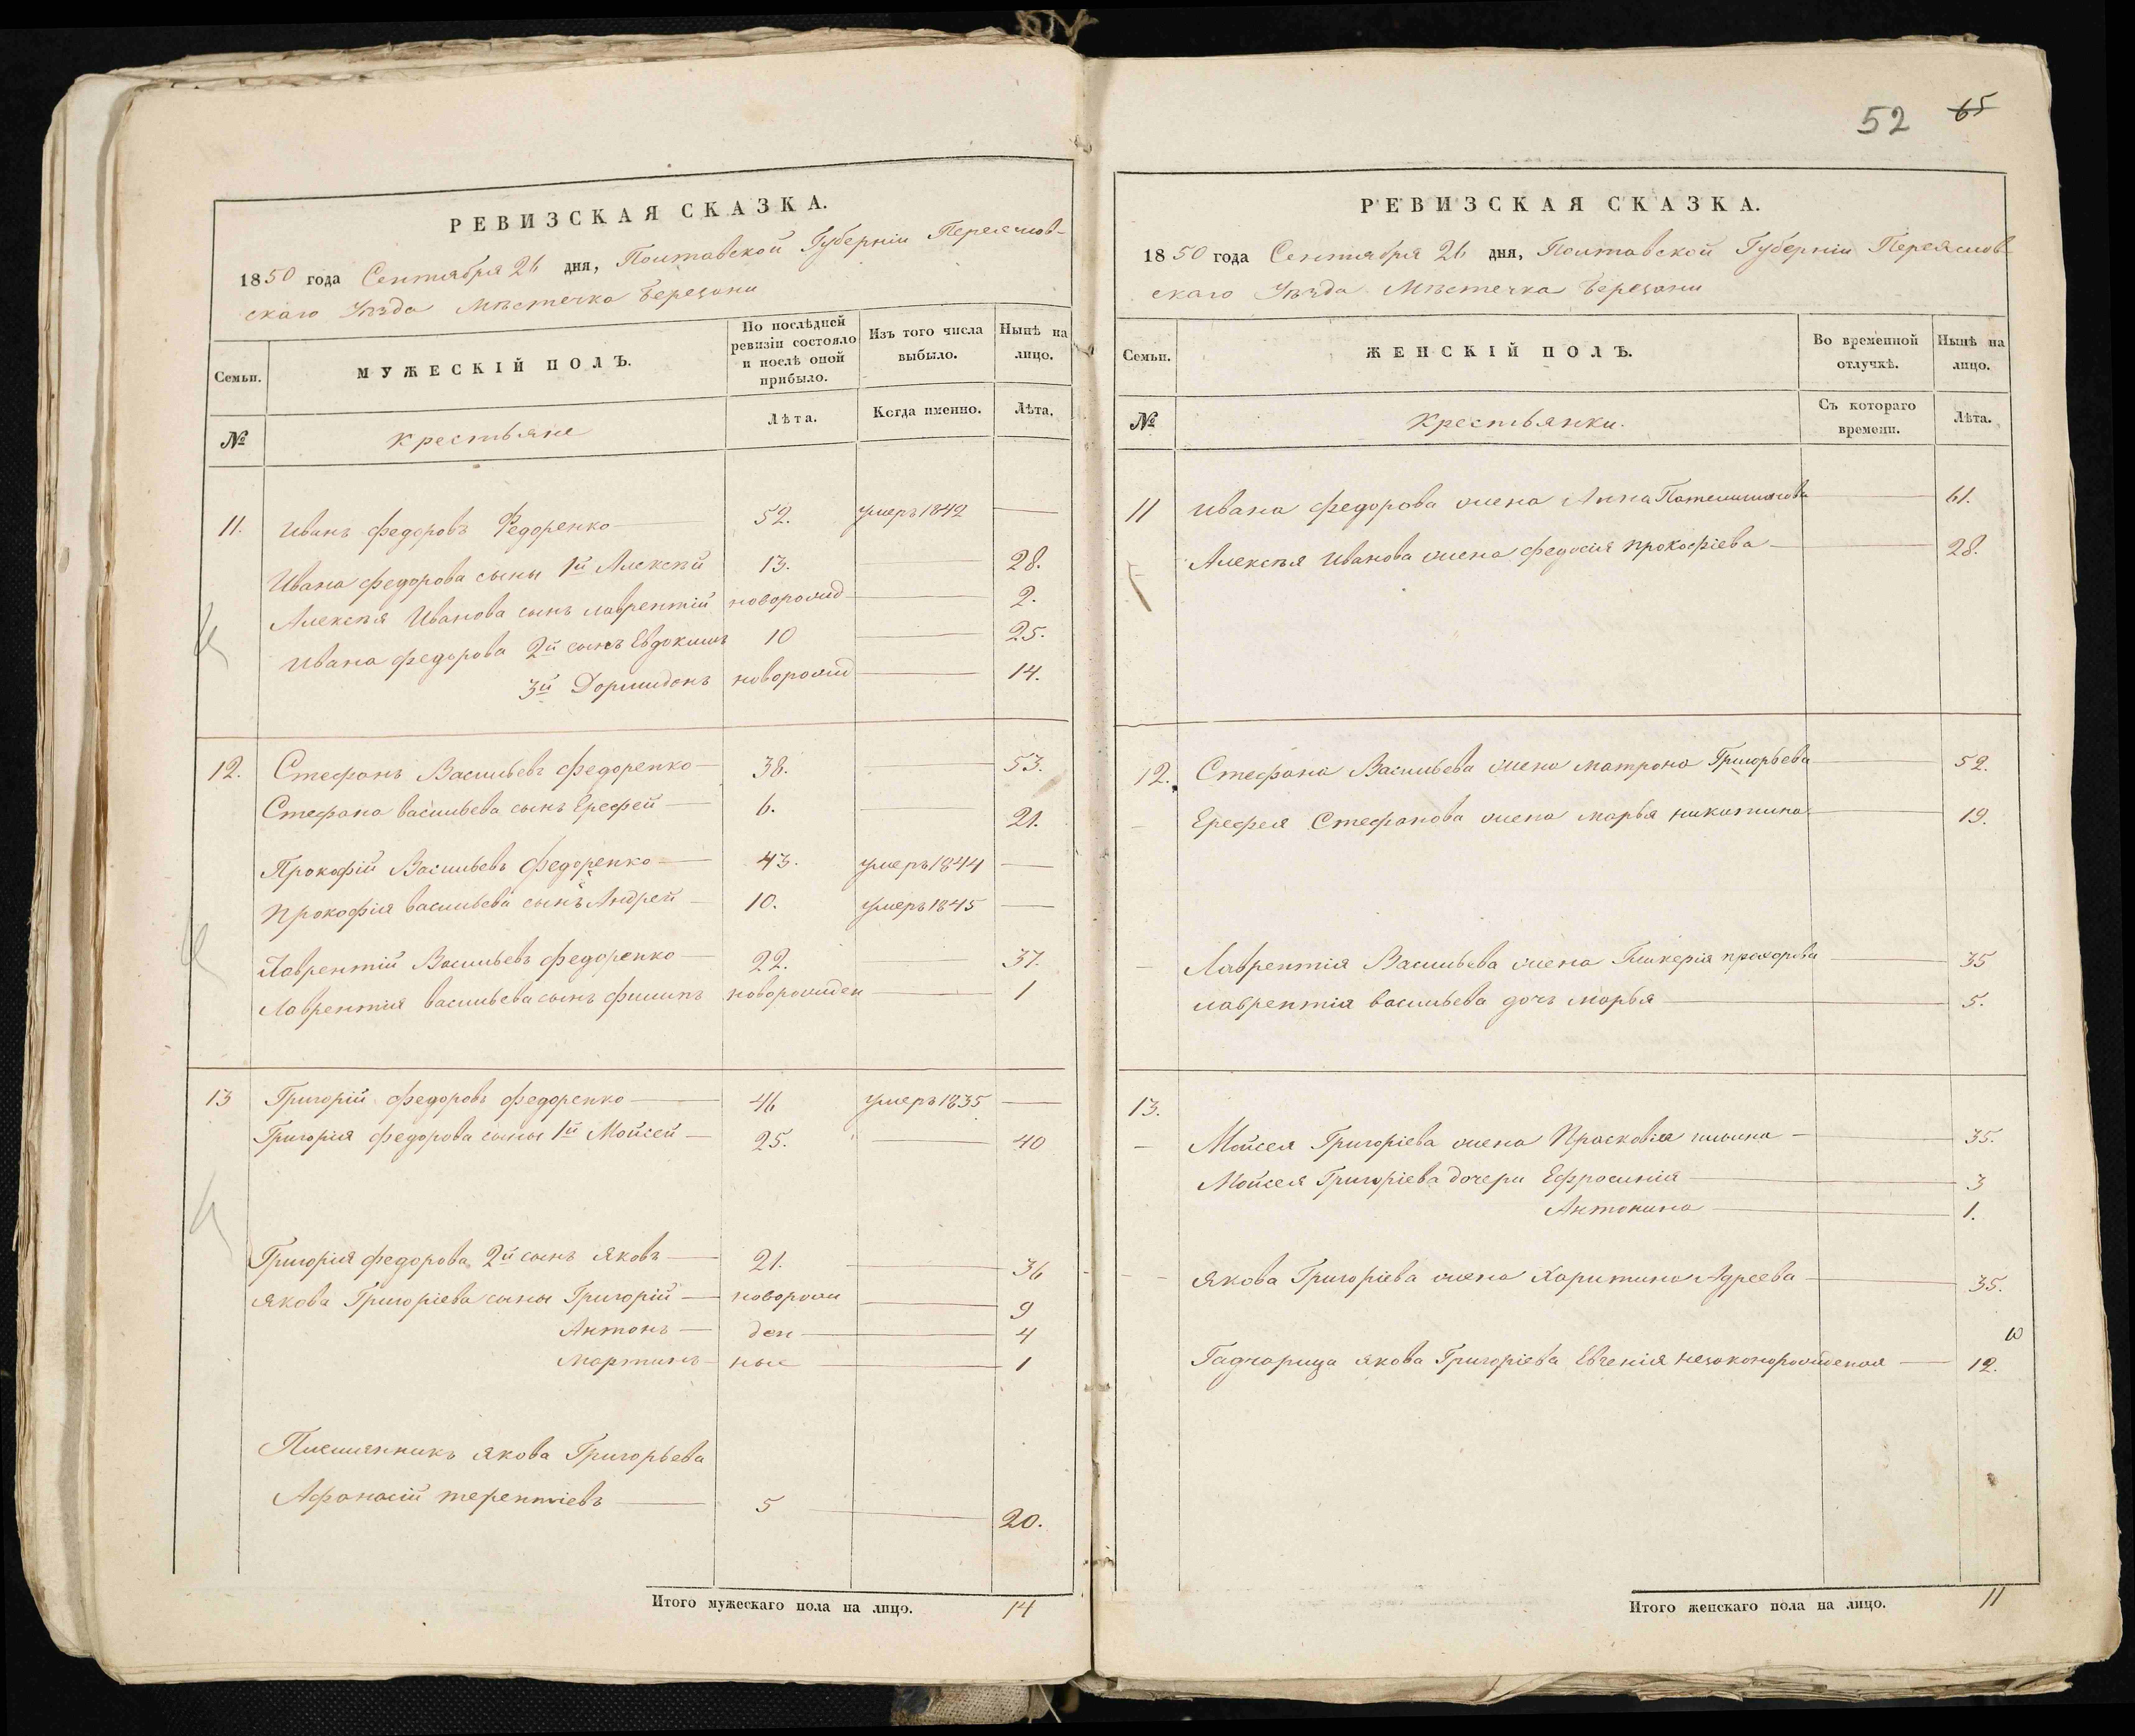 52 65
РЕВИЗСКАЯ СКАЗКА.
1850 года Сентября 26 дня, Полтавской Губерніи Переяслов-
скаго Уѣзда Мѣстечка Березани
Семьи.
МУЖЕСКІЙ ПОЛЪ.
По послѣдней ревизіи состояло и послѣ оной прибыло.
Изъ того числа выбыло.
Нынѣ на лицо.
№
Крестьяне
Лѣта.
Когда именно.
Лѣта.
11. Иванъ Федоровъ Федоренко 52. умеръ 1842 —
Ивана Федорова сыны 1й Алексѣй 13. — 28.
Алексѣя Иванова сынъ Лаврентій новорожд — 2.
Ивана Федорова 2й сынъ Евдокимъ 10 — 25.
3й Дормидонъ новорожд — 14.
12. Стефанъ Васильевъ Федоренко — 38. — 53.
Стефана Васильева сынъ Ерефей — 6. — 21.
Прокофій Васильевъ Федоренко — 43. умеръ 1844 —
Прокофія Васильева сынъ Андрей — 10. умеръ 1845 —
Лаврентій Васильевъ Федоренко — 22. 37.
Лаврентія Васильева сынъ Филипъ новорожден — 1
13 Григорій Федоровъ Федоренко — 46 умеръ 1835 —
Григорія Федорова сыны 1й Мойсей — 25. — 40
Григорія Федорова 2й сынъ Яковъ — 21. — 36
Якова Григоріева сыны Григорій — новорож — 9
Антонъ — ден — 4
Мартинъ — ные — 1
Племянникъ Якова Григорьева
Афанасій Терентіевъ — 5 — 20.
Итого мужескаго пола на лицо. 14
РЕВИЗСКАЯ СКАЗКА.
1850 года Сентября 26 дня, Полтавской Губерніи Переяслов-
скаго Уѣзда Мѣстечка Березани
Семьи.
ЖЕНСКІЙ ПОЛЪ.
Во временной отлучкѣ.
Нынѣ на лицо.
№
Крестьянки.
Съ котораго времени.
Лѣта.
11 Ивана Федорова жена Анна — 61.
Алексѣя Иванова жена Федосія Прокофіева — 28.
12. Стефана Васильева жена Матрона Григорьева — 52.
Ерефея Стефанова жена Марья Никитина — 19.
Лаврентія Васильева жена Гликерія Прохорова — 35
Лаврентія Васильева дочь Марья — 5.
13.
Мойсея Григоріева жена Прасковія — 35.
Мойсея Григоріева дочери Ефросинія — 3
Антонина — 1.
Якова Григоріева жена Харитина Адреева — 35.
10
Якова Григоріева Евгенія незаконорожденая — 12.
Итого женскаго пола на лицо. 11